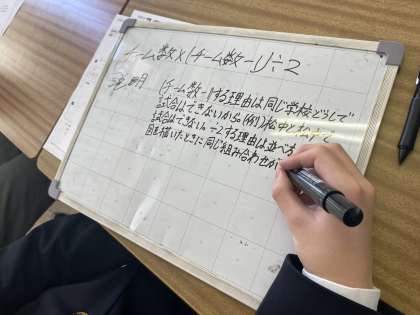 チーム数×(チーム数-1)÷2
説明
(チーム数-1)する理由は同じ学校どうしで
試合はできないから。(例)松中と松中で
試合はできない。÷2する理由は並べ方
図を描いたときに同じ組み合わせが